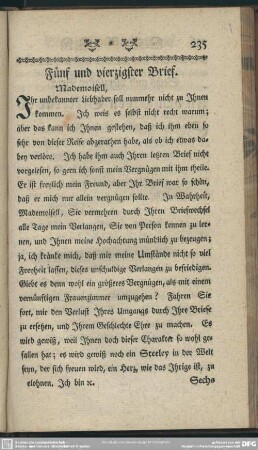 235
Fünf und vierzigster Brief.
Mademoisell,
Ihr unbekannter Liebhaber soll nunmehr nicht zu Ihnen
kommen. Ich weis es selbst nicht recht warum;
aber das kann ich Ihnen gestehen, daß ich ihm eben so
sehr von dieser Reise abgerathen habe, als ob ich etwas da-
bey verlöre. Ich habe ihm auch Ihren letzten Brief nicht
vorgelesen, so gern ich sonst mein Vergnügen mit ihm theile.
Er ist freylich mein Freund, aber Ihr Brief war so schön,
daß er mich nur allein vergnügen sollte. In Wahrheit,
Mademoisell, Sie vermehren durch Ihren Briefwechsel
alle Tage mein Verlangen, Sie von Person kennen zu ler-
nen, und Ihnen meine Hochachtung mündlich zu bezeugen;
ja, ich kränke mich, daß mir meine Umstände nicht so viel
Freyheit lassen, dieses unschuldige Verlangen zu befriedigen.
Giebt es denn wohl ein größeres Vergnügen, als mit einem
vernünftigen Frauenzimmer umzugehen? Fahren Sie
fort, mir den Verlust Ihres Umgangs durch Ihre Briefe
zu ersetzen, und Ihrem Geschlechte Ehre zu machen. Es
wird gewiß, weil Ihnen doch dieser Charakter so wohl ge-
fallen hat; es wird gewiß noch ein Steeley in der Welt
seyn, der sich freuen wird, ein Herz, wie das Ihrige ist, zu
belohnen. Ich bin ꝛc.
Sechs